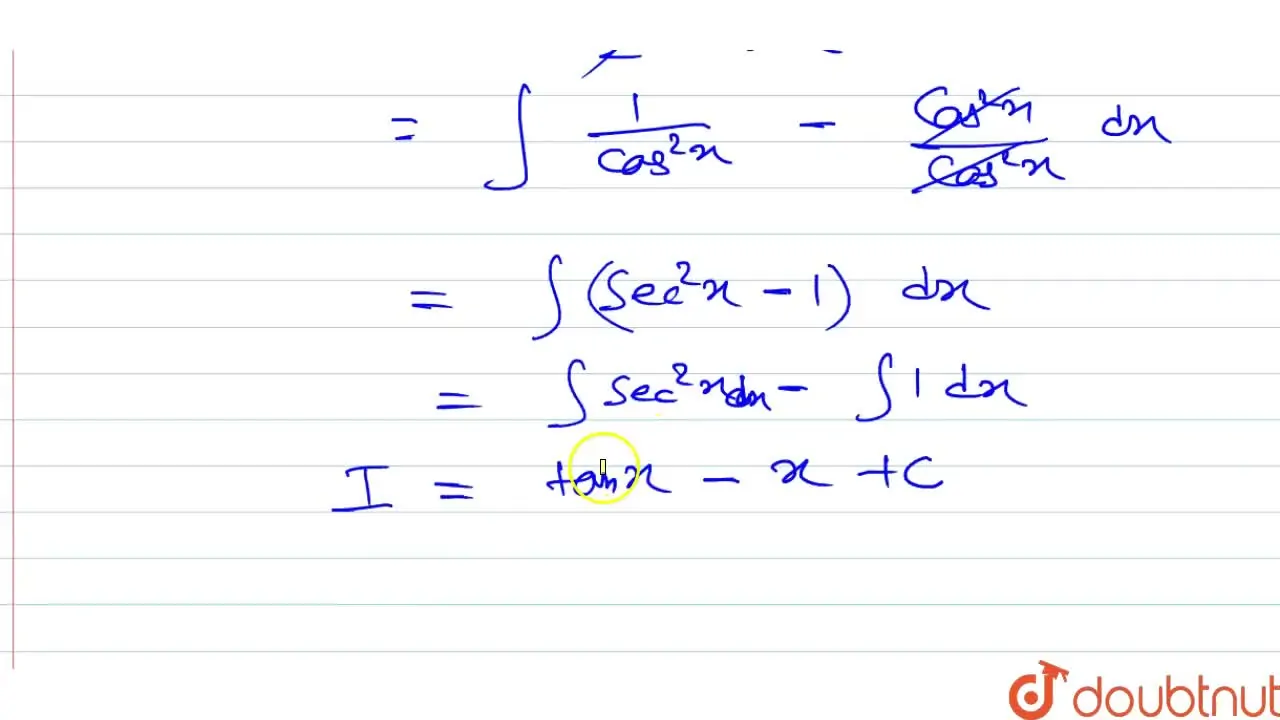 = ∫ 1/cos²x - cos²x/cos²x dx
= ∫ (Sec²x - 1) dx
= ∫ Sec²x dx - ∫ 1 dx
I = tan x - x + C
doubtnut